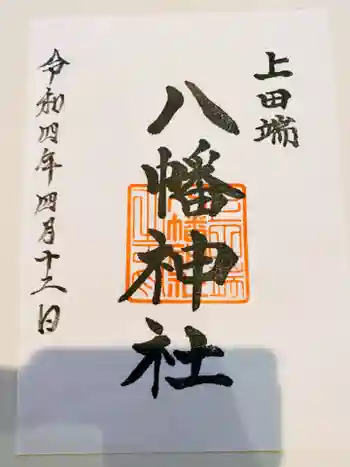 上田端
八幡神社
令和四年四月十三日